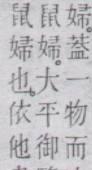 婦。蓋一物而
鼠婦。大平御
鼠婦也。依他